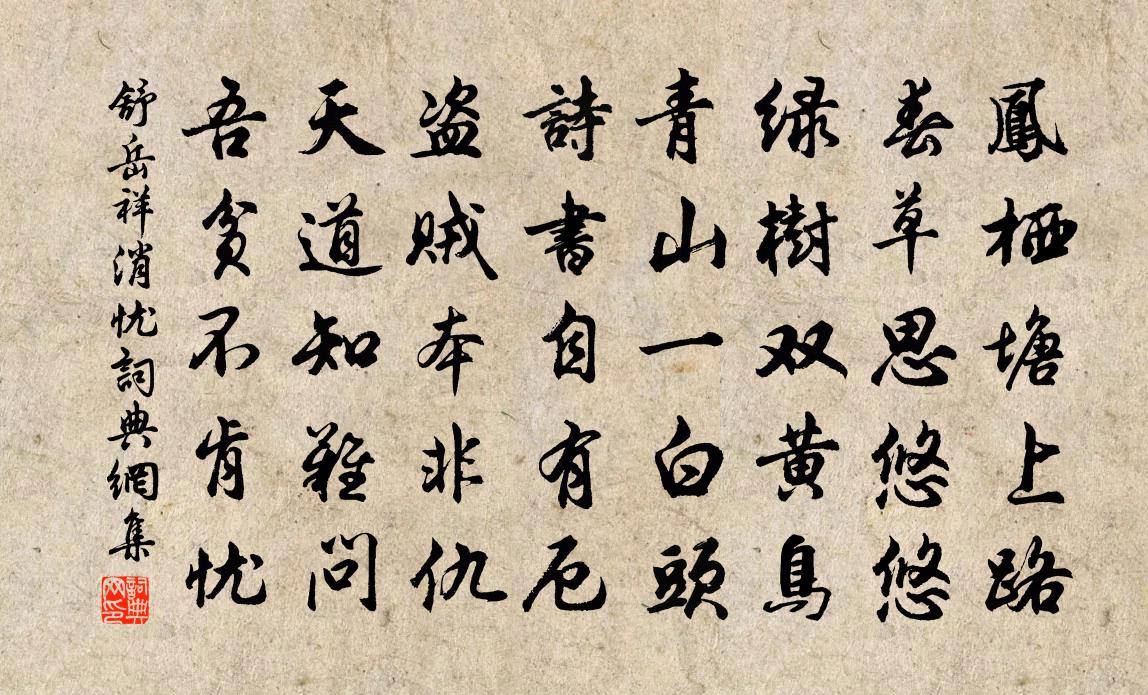 鳳栖塘上路
春草思悠悠
绿樹双黄鳥
青山一白頭
詩書自有厄
盗賊本非仇
天道知難問
吾貧不肯忧
舒岳祥消忧詞典網集
詞典網印